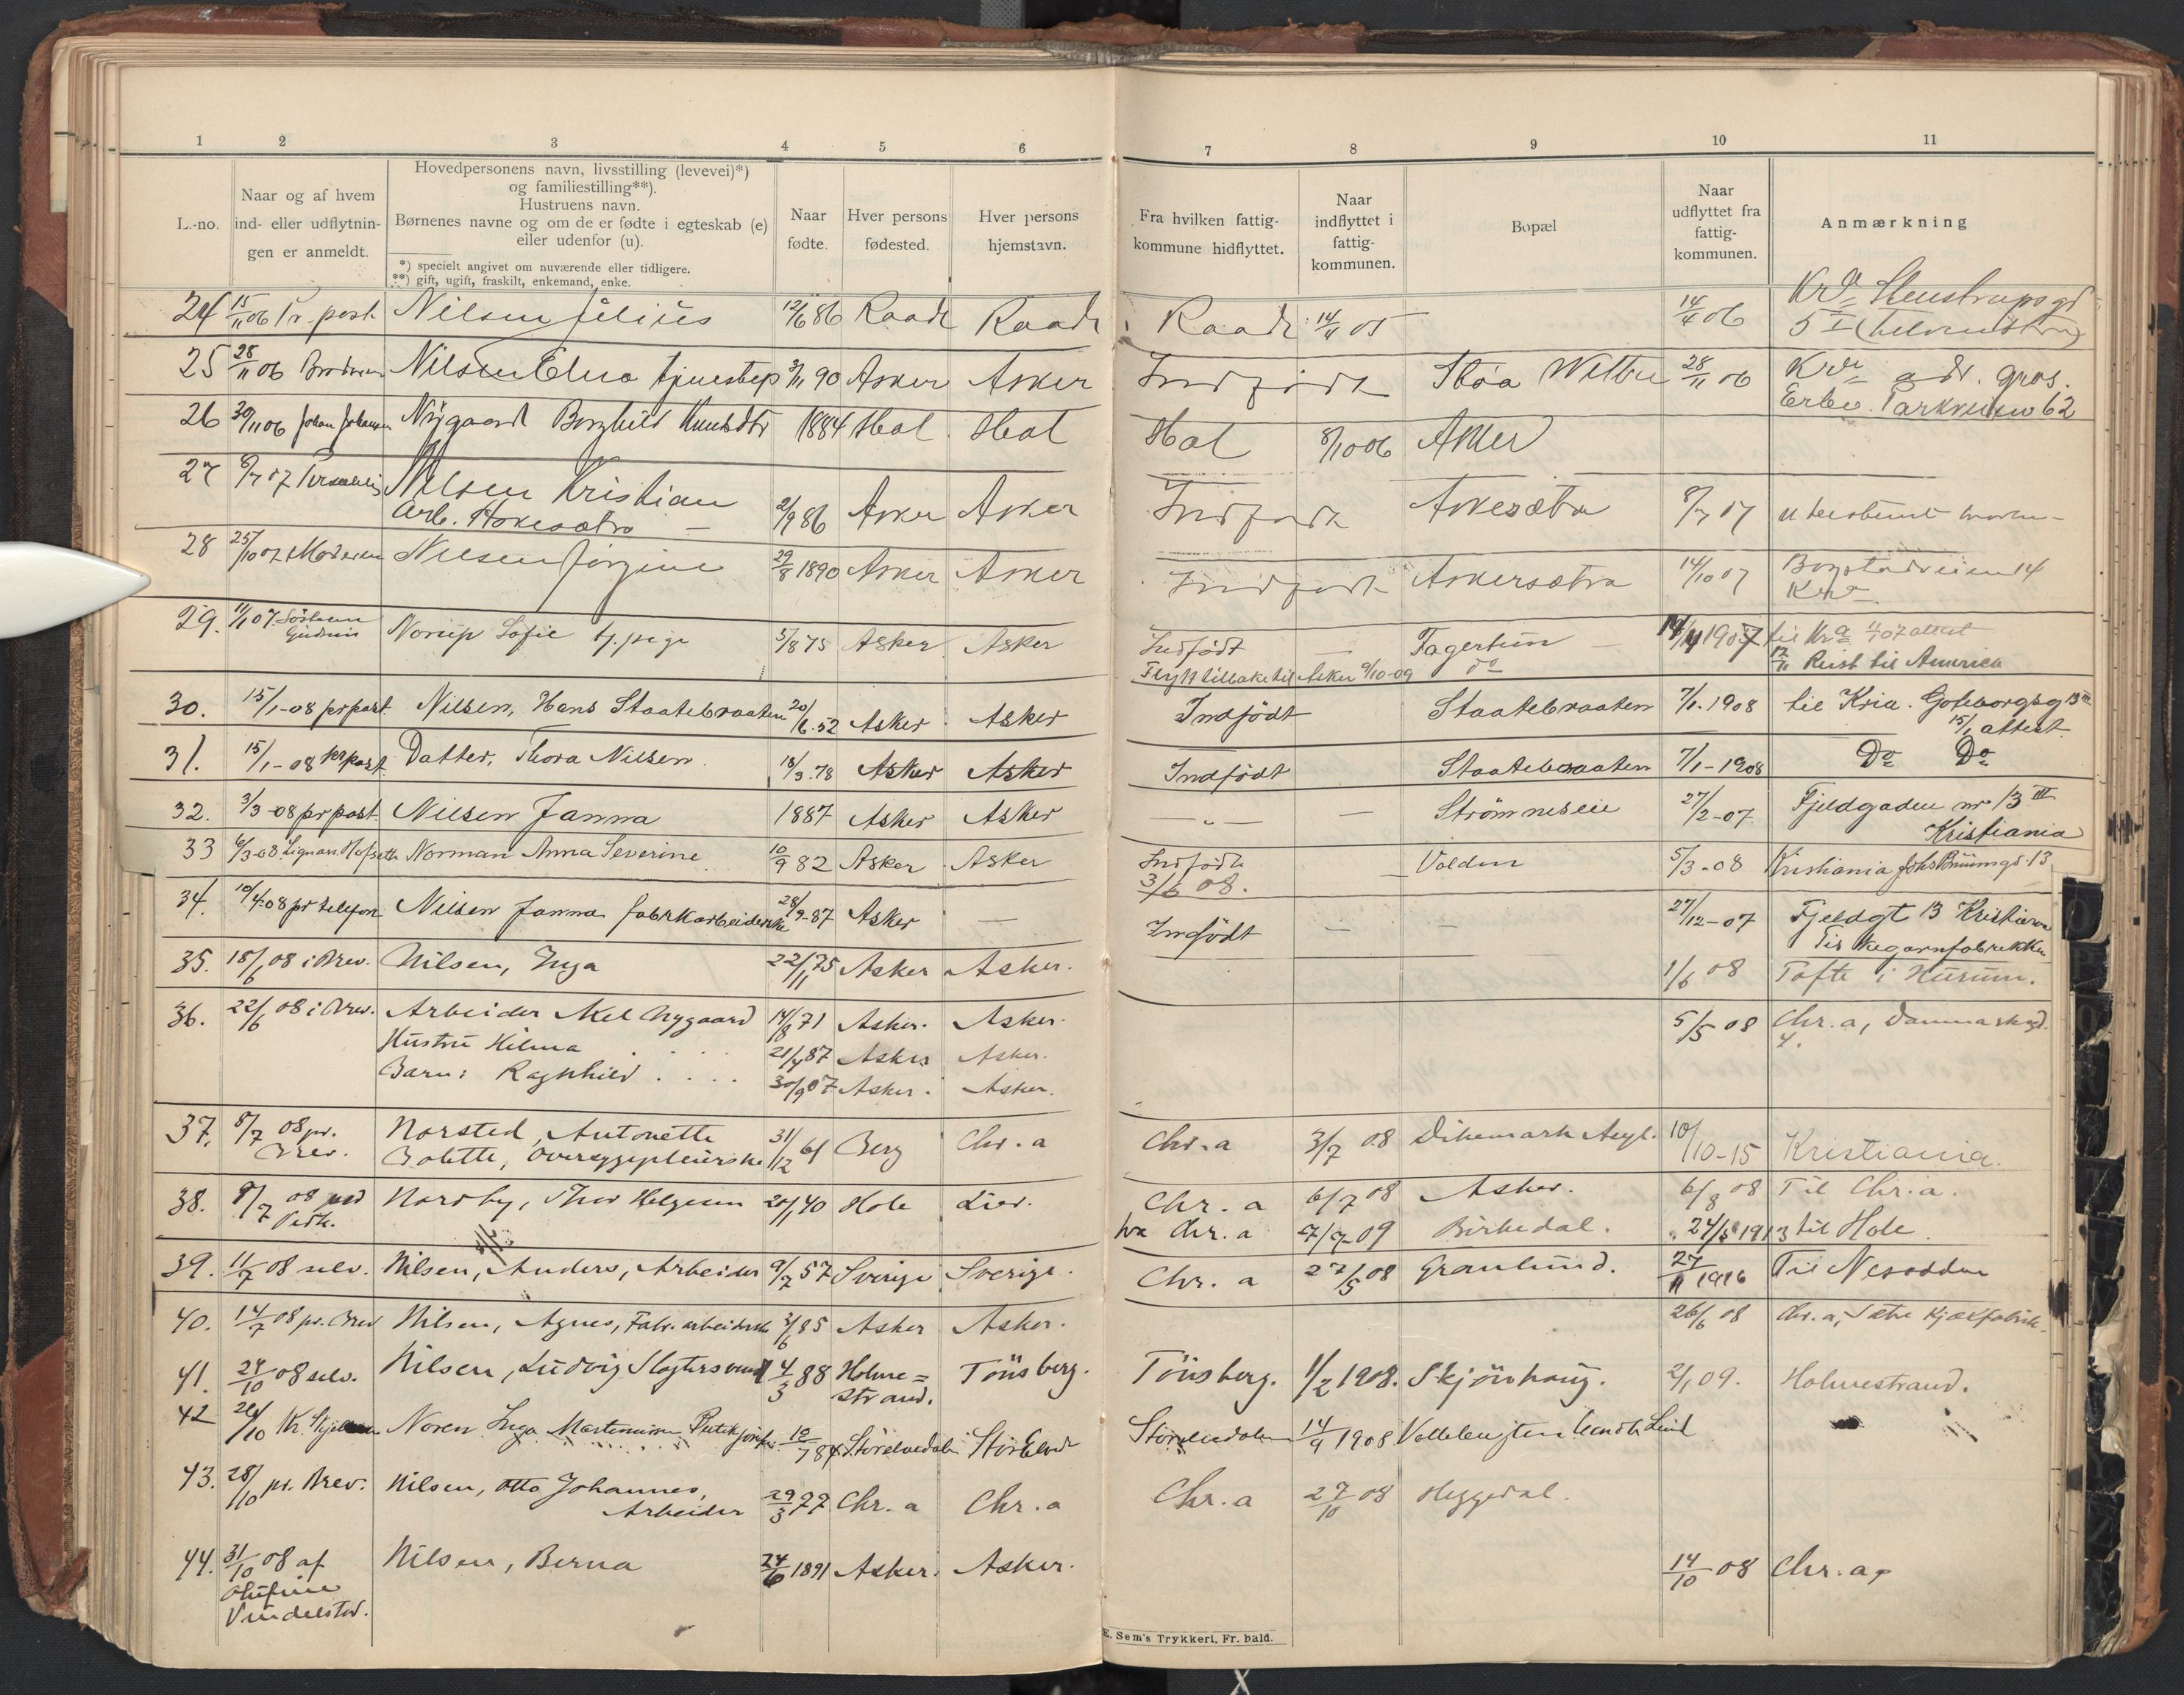 1 2 3 4 5 6 7 8 9 10 11
L.-no.
Naar og af hvem
ind- eller udflytnin-
gen er anmeldt.
Hovedpersonens navn, livsstilling (levevei)*)
og familiestilling**).
Hustruens navn.
Børnenes navne og om de er fødte i egteskab (e)
eller udenfor (u).
*) specielt angivet om nuværende eller tidligere.
**) gift, ugift, fraskilt, enkemand, enke.
Naar
fødte.
Hver persons
fødested.
Hver persons
hjemstavn.
Fra hvilken fattig-
kommune hidflyttet.
Naar
indflyttet i
fattig-
kommunen.
Bopæl
Naar
udflyttet fra
fattig-
kommunen.
Anmærkning
24 15/11 06 Pr post Nilsen Julius 12/6 86 Raade Raade Raade 14/11 05 14/4 06
25 28/11 06 Nilsen Elna 3/11 90 Asker Asker Indfödt 28/11 06
Parkveien 62
26 30/11 06 Johan Johansen Nygaard Borghild 1884 Hol Hol Hol 8/10 06 Asker
27 8/7 07 Nilsen Kristian
Arb. 2/9 86 Asker Asker Indfödt Askesætra 8/7 07
28 25/10 07 Moderen Nilsen Jörgine 29/8 1890 Asker Asker Indfödt Askersætra 14/10 07 Bogstadveien 14
29. 11/1 07 Norup Sofie tj. pige 5/8 75 Asker Asker Indfödt — Fagertun — 1907 til Kra attest
Flytt tilbake til Asker 9/10-09 do Reist til America
30. 15/1-08 pr post. Nilsen, Hans Staatebraaten 20/6.52 Asker Asker Indfödt Staatebraaten 7/1.1908 til Kria. Goteborgsg 13 III
15/1 attest
31. 15/1-08 pr post Datter, Thora Nilsen. 18/3.78 Asker Asker Indfödt Staatebraaten 7/1-1908 Do Do
32. 3/3-08 pr post. Nilsen Janna 1887 Asker Asker — „ — — Strömneseie 27/2-07. Fjeldgaden nr 13 III
Kristiania
33 6/3-08 Norman Anna Severine 10/9 82 Asker Asker Indfödt Volden 5/3-08 Kristiania
3/6 08.
34. 10/4-08 pr telefon Nilsen Janna fabrikarbeiderske 28/9-87 Asker — Indfödt — — 27/12-07 Fjeldgt 13 Kristiania
35. 18/6 08 i Brev. Nilsen, Inga 22/11 75 Asker Asker. 1/6 08 Tofte i Hurum.
36. 22/6 08 i Brev. Arbeider Axel Nygaard 14/8 71 Asker. Asker. 5/5 08 Chr. a, Danmarksgd.
4.
Hustru Hilma . . . . 21/4 87 Asker Asker.
Barn: Ragnhild . . . . 30/9 07 Asker. Asker.
37. 8/7 08 pr.
Brev. Norsted, Antonette
Bolette, 31/12 61 Berg Chr. a Chr. a 3/7 08 Dikemark Asyl. 10/10-15 Kristiania.
38. 9/7 08 Nordby, Thor Helgesen 20/1 40 Hole Lier. Chr. a 6/7 08 Asker. 6/8 08 Til Chr. a.
fra Chr. a 7/7-09 Birkedal. 24/5 1913 til Hole
39. 11/7 08 selv. Nilsen, Anders, Arbeider 9/7 57 Sverige Sverige. Chr. a 27/5 08 Granlund. 27/11 1916 Til Nesodden
40. 14/7 08 pr. Brev Nilsen, Agnes, Fabr. arbeiderske 3/6 85 Asker Asker. 26/6 08 Chr. a,
41. 24/10 08 selv. Nilsen, Ludvig Slagtersvend 4/3 88 Holme=
strand. Tönsberg. Tönsberg. 1/2 1908. Skjönhaug. 2/1 09. Holmestrand.
42 Noren Inga 10/7 84 14/9 1908
43. 28/10 pr. Brev. Nilsen, Otto Johannes,
Arbeider 29/3 77 Chr. a Chr. a Chr. a 27/10 08 Heggedal.
44. 31/10 08 af
Olufine
Vindelstad. Nilsen, Berna 24/6 1891 Asker. Asker. 14/10-08 Chr. a,
E. Sem's Trykkeri, Fr. hald.